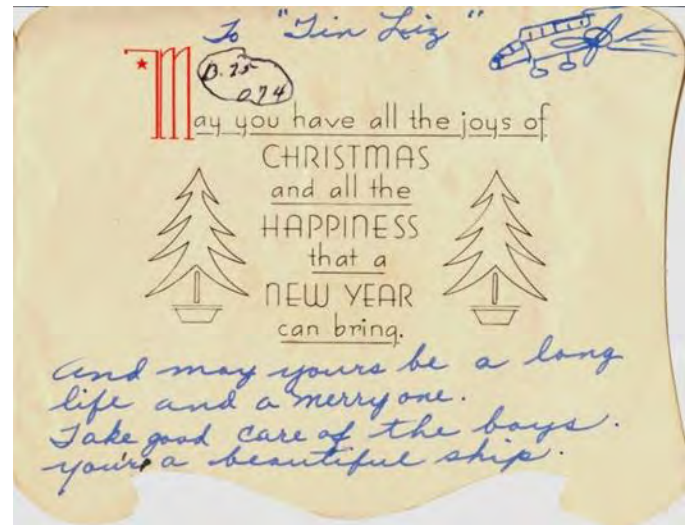 To "Tin Liz"
B. 25
074
May you have all the joys of
CHRISTMAS
and all the
HAPPINESS
that a
NEW YEAR
can bring.
And may yours be a long
life and a merry one.
Take good care of the boys.
you're a beautiful ship.